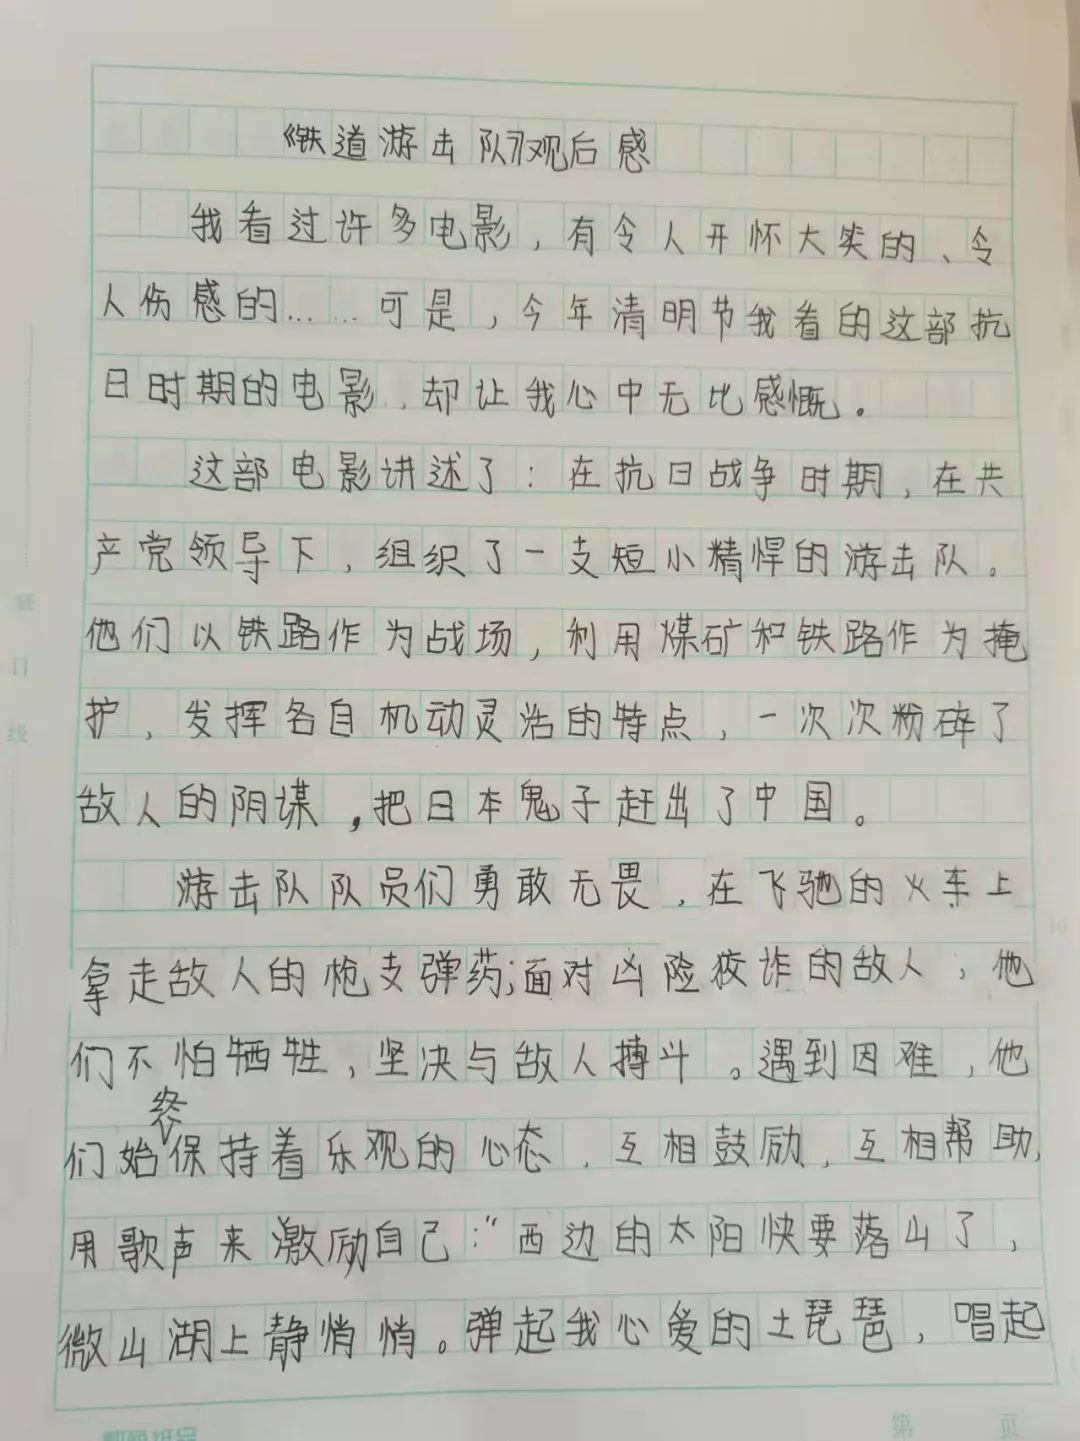 《铁道游击队》观后感
我看过许多电影，有令人开怀大笑的、令
人伤感的……可是，今年清明节我看的这部抗
日时期的电影，却让我心中无比感慨。
这部电影讲述了：在抗日战争时期，在共
产党领导下，组织了一支短小精悍的游击队。
他们以铁路作为战场，利用煤矿和铁路作为掩
护，发挥各自机动灵活的特点，一次次粉碎了
敌人的阴谋，把日本鬼子赶出了中国。
游击队队员们勇敢无畏，在飞驰的火车上
拿走敌人的枪支弹药；面对凶险狡诈的敌人，他
们不怕牺牲，坚决与敌人搏斗。遇到困难，他
们始终保持着乐观的心态，互相鼓励，互相帮助，
用歌声来激励自己：“西边的太阳快要落山了，
微山湖上静悄悄。弹起我心爱的土琵琶，唱起
装
订
线
第 页